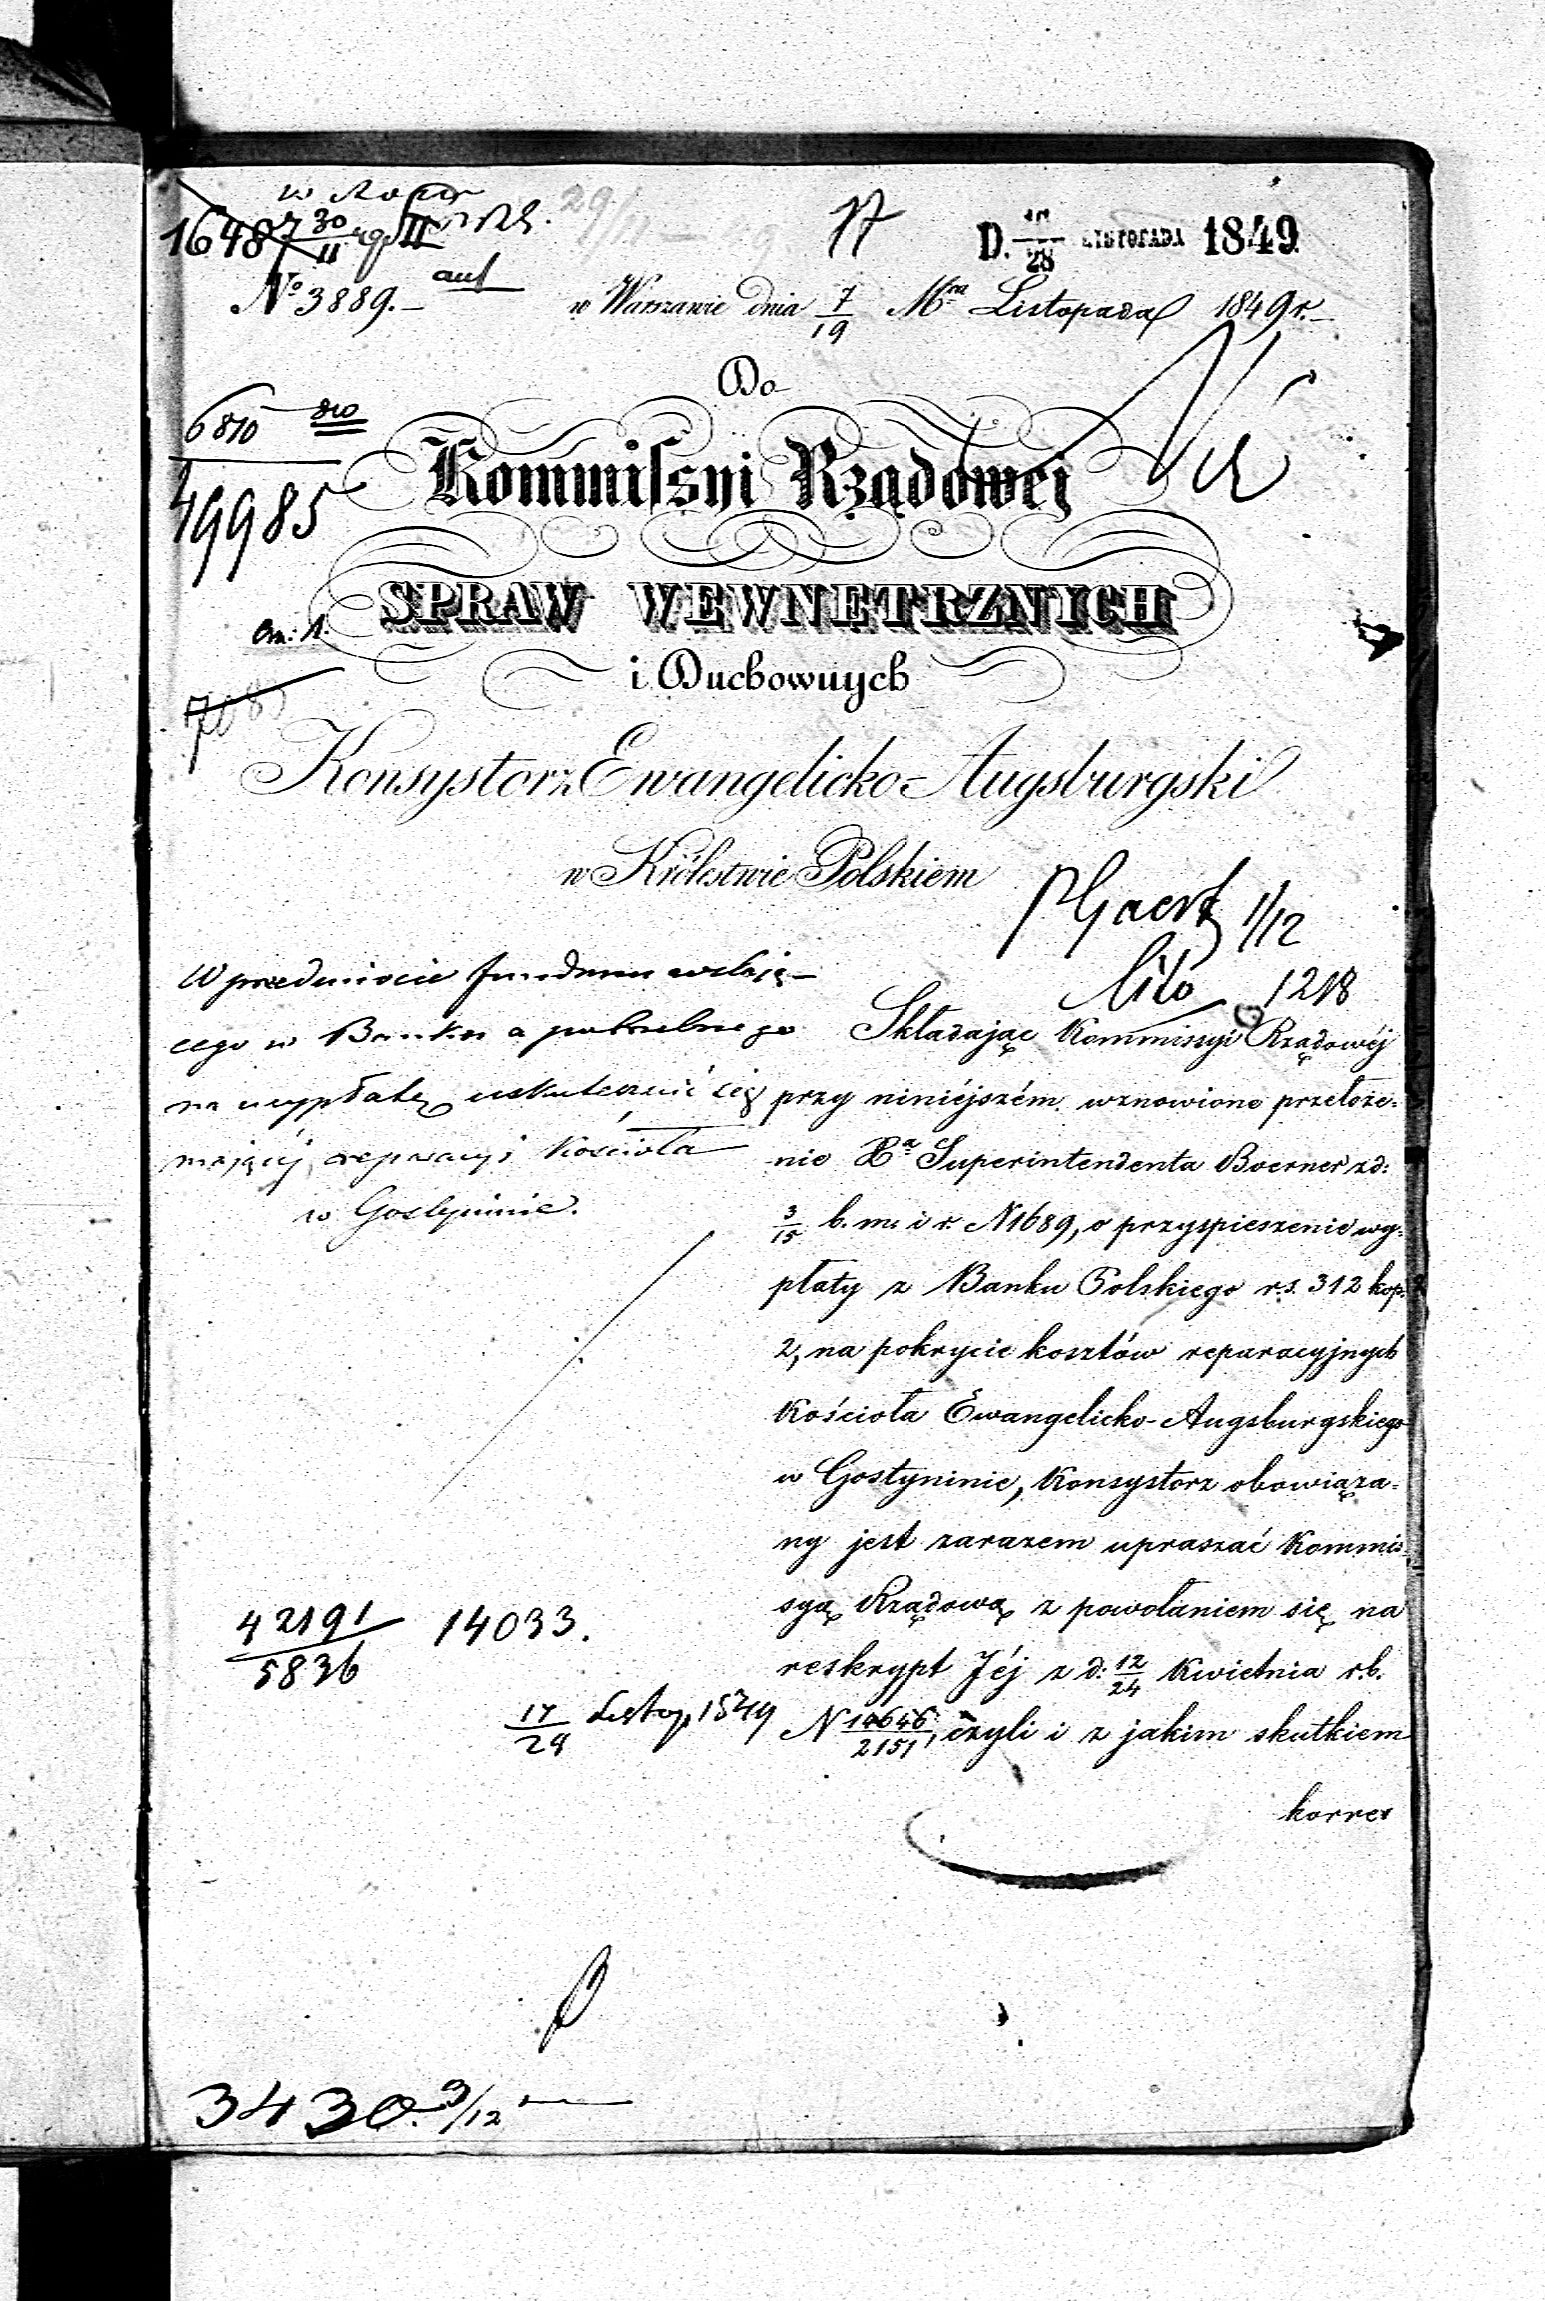 D. 16/28 LISTOPADA 1849
17
№ 3889.–
w Warszawie dnia 7/19 Mca Listopada 1849 r.–
Do
6810
49985
Kommissyi Rządowej
SPRAW WEWNĘTRZNYCH
i Duchownych
an: 1.
Konsystorz Ewangelicko-Augsburgski
w Królestwie Polskiem
1/12
1218
W przedmiocie funduszu
cego w Banku a potrzebnego
na wypłatę uskutecznić się
mającéj reparacyi Kościoła
w Gostyninie.
Składając Kommissyi Rządowéj
przy niniéjszém wznowione przełoże=
nie Xa Superintendenta Boerner z d:
3/15 b. m. i r. N 1689, o przyspieszenie wy=
płaty z Banku Polskiego r.s. 312 kop.
2, na pokrycie kosztów reparacyjnych
Kościoła Ewangelicko-Augsburgskiego
w Gostyninie, Konsystorz obowiąza=
ny jest zarazem upraszać Kommis=
syą Rządową z powołaniem się na
reskrypt Jéj z d: 12/24 Kwietnia r.b.
N 10646/2151, czyli i z jakim skutkiem
korres
42191/5836 14033.
17/29 Listop. 1849
3430. 3/12